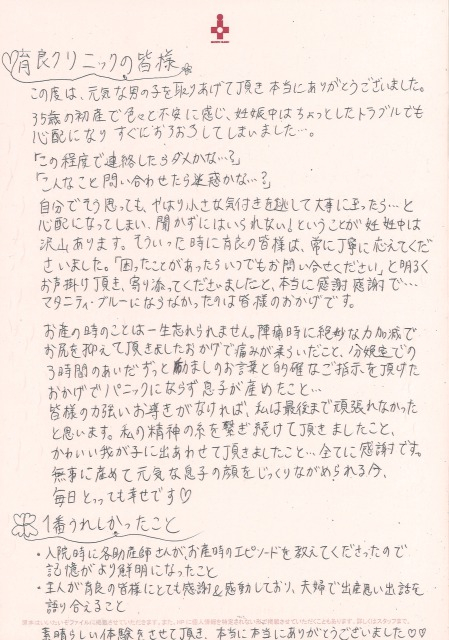 育良クリニックの皆様
この度は、元気な男の子を取りあげて頂き本当にありがとうございました。
35歳の初産で色々と不安に感じ、妊娠中はちょっとしたトラブルでも
心配になり すぐにおろおろしてしまいました…。
「この程度で連絡したらダメかな…?」
「こんなこと問い合わせたら迷惑かな…?」
自分でそう思っても、やはり小さな気付きを逃して大事に至ったら…と
心配になってしまい、聞かずにはいられない!ということが妊娠中は
沢山あります。そういった時に育良の皆様は、常に丁寧に応えてくだ
さいました。「困ったことがあったらいつでもお問い合せください」と明るく
お声掛け頂き、寄り添ってくださいましたこと、本当に感謝感謝で…
マタニティ・ブルーにならなかったのは皆様のおかげです。
お産の時のことは一生忘れられません。陣痛時に絶妙な力加減で
お尻を抑えて頂きましたおかげで痛みが柔らいだこと、分娩室での
3時間のあいだずっと励ましのお言葉と的確なご指示を頂けた
おかげでパニックにならず息子が産めたこと…
皆様の力強いお導きがなければ、私は最後まで頑張れなかった
と思います。私の精神の糸を繋ぎ続けて頂きましたこと、
かわいい我が子に出あわせて頂きましたこと…全てに感謝です。
無事に産めて元気な息子の顔をじっくりながめられる今、
毎日とっても幸せです♡
1番うれしかったこと
・入院時に各助産師さんが、お産時のエピソードを教えてくださったので
記憶がより鮮明になったこと
・主人が育良の皆様にとても感謝&感動しており、夫婦で出産思い出話を
語り合えること
素晴らしい体験をさせて頂き、本当に本当にありがとうございました♡♡